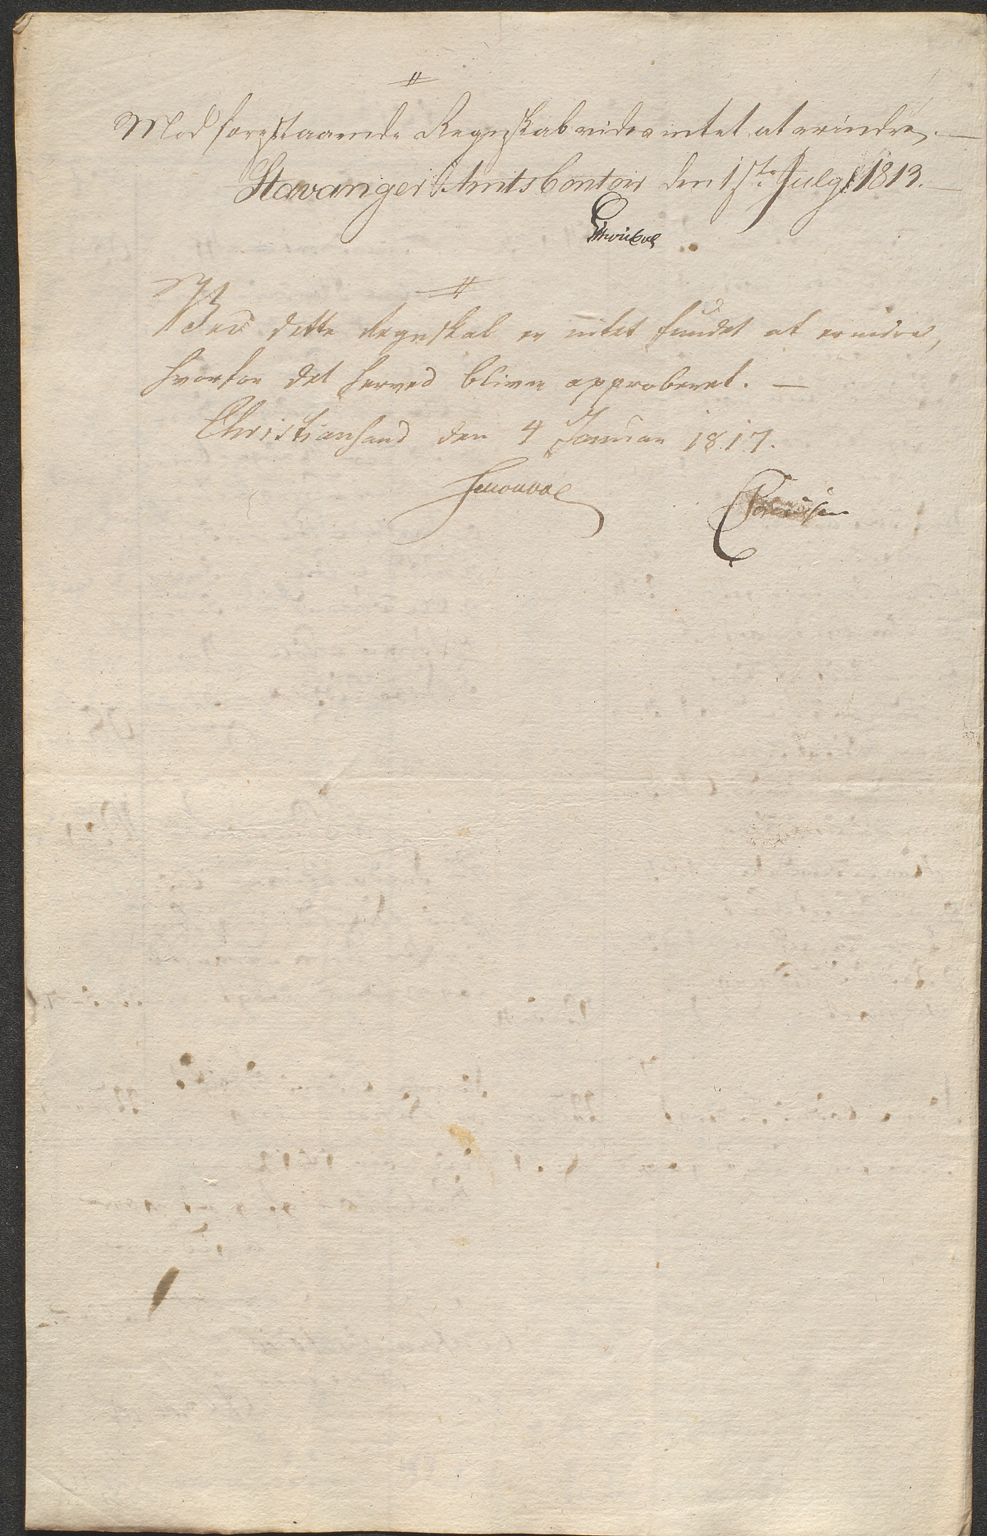 Mod foregstaaende Regnskab vides intet at erindre. —
Stavanger Amts Contoir den 1ste July 1813. —
Ved dette Regnskab er intet fundet at erindre,
hvorfor det herved bliver approberet. —
Christiansand den 4 Januar 1817.